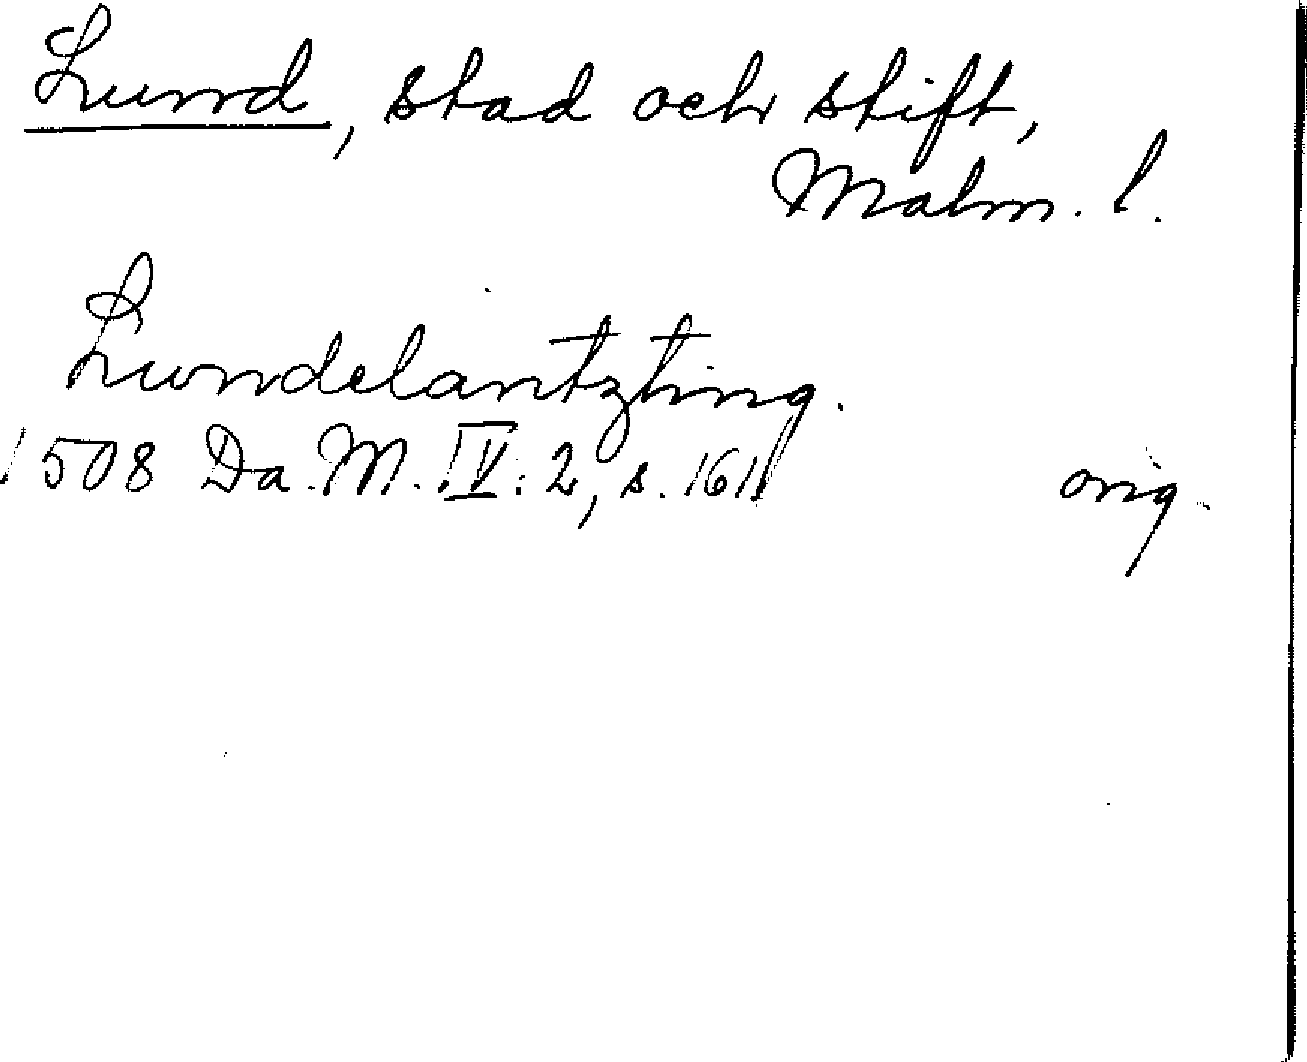 Lund, stad och stift,
Malm. l.
Lundelantzting.
1508 Da. M. IV: 2, s. 161 orig.